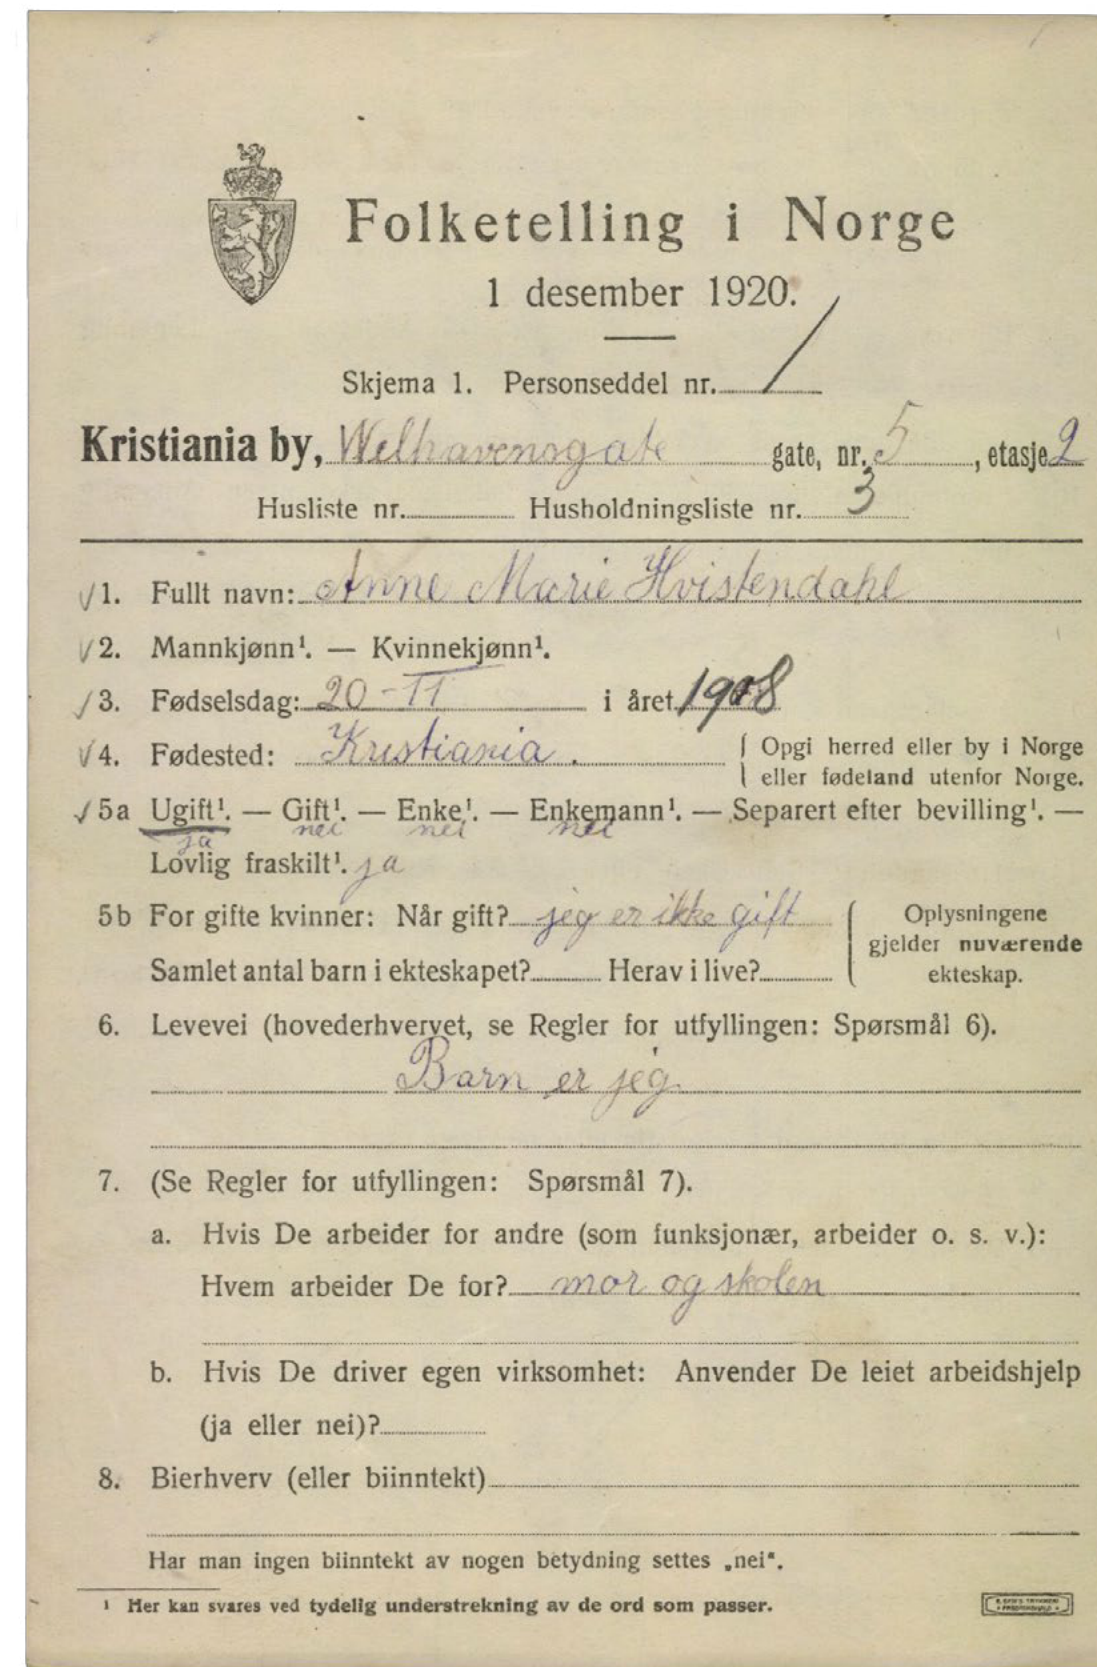 Folketelling i Norge
1 desember 1920.
Skjema 1. Personseddel nr. 1
Kristiania by, Welhavensgate gate, nr. 5, etasje 2
Husliste nr. Husholdningsliste nr. 3
1. Fullt navn: Anne Marie Hvistendahl
2. Mannkjønn¹. — Kvinnekjønn¹.
3. Fødselsdag: 20-11 i året 1908
4. Fødested: Kristiania. { Opgi herred eller by i Norge
eller fødeland utenfor Norge.
5a Ugift¹. — Gift¹. — Enke¹. — Enkemann¹. — Separert efter bevilling¹. —
ja nei nei nei
Lovlig fraskilt¹. ja
5b For gifte kvinner: Når gift? jeg er ikke gift { Oplysningene
gjelder nuværende
Samlet antal barn i ekteskapet? Herav i live? ekteskap.
6. Levevei (hovederhvervet, se Regler for utfyllingen: Spørsmål 6).
Barn er jeg.
7. (Se Regler for utfyllingen: Spørsmål 7).
a. Hvis De arbeider for andre (som funksjonær, arbeider o. s. v.):
Hvem arbeider De for? mor og skolen
b. Hvis De driver egen virksomhet: Anvender De leiet arbeidshjelp
(ja eller nei)?
8. Bierhverv (eller biinntekt)
Har man ingen biinntekt av nogen betydning settes „nei“.
¹ Her kan svares ved tydelig understrekning av de ord som passer.